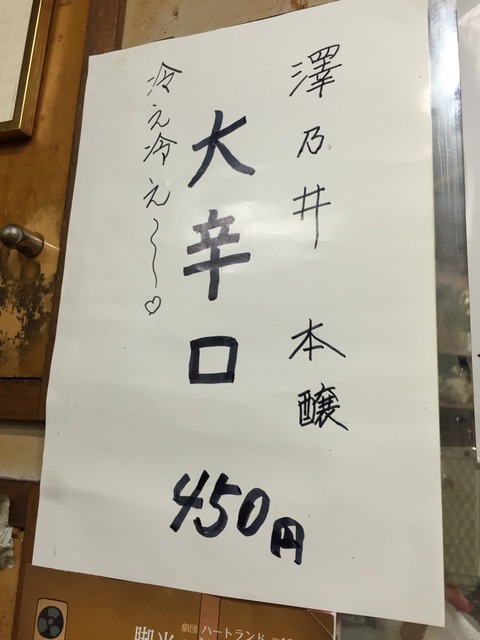 澤乃井 本醸
大辛口
450円
冷え冷え〜♡
劇団 ハートランド